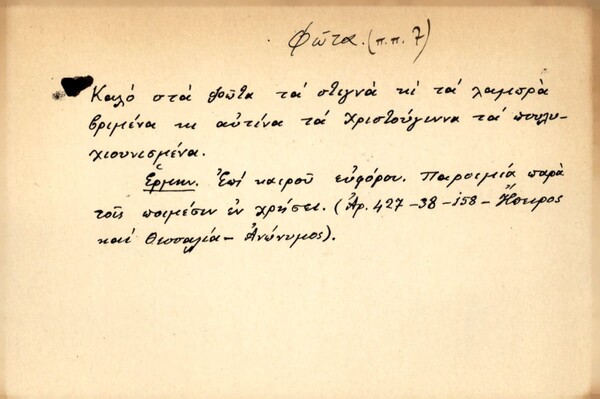 Φῶτα. (π.π. 7)
Καλὸ στὰ Φῶτα τὰ στιγνὰ κὶ τὰ Λαμπρὰ
βριμένα κι αὐτίνα τὰ Χριστούγιννα τὰ πουλυ-
χιουνισμένα.
Ἑρμην. Ἐπὶ καιροῦ εὐφόρου. Παροιμία παρὰ
τοῖς ποιμέσιν ἐν χρήσει. (Ἀρ. 427-38-158-Ἤπειρος
καὶ Θεσσαλία-Ἀνώνυμος).